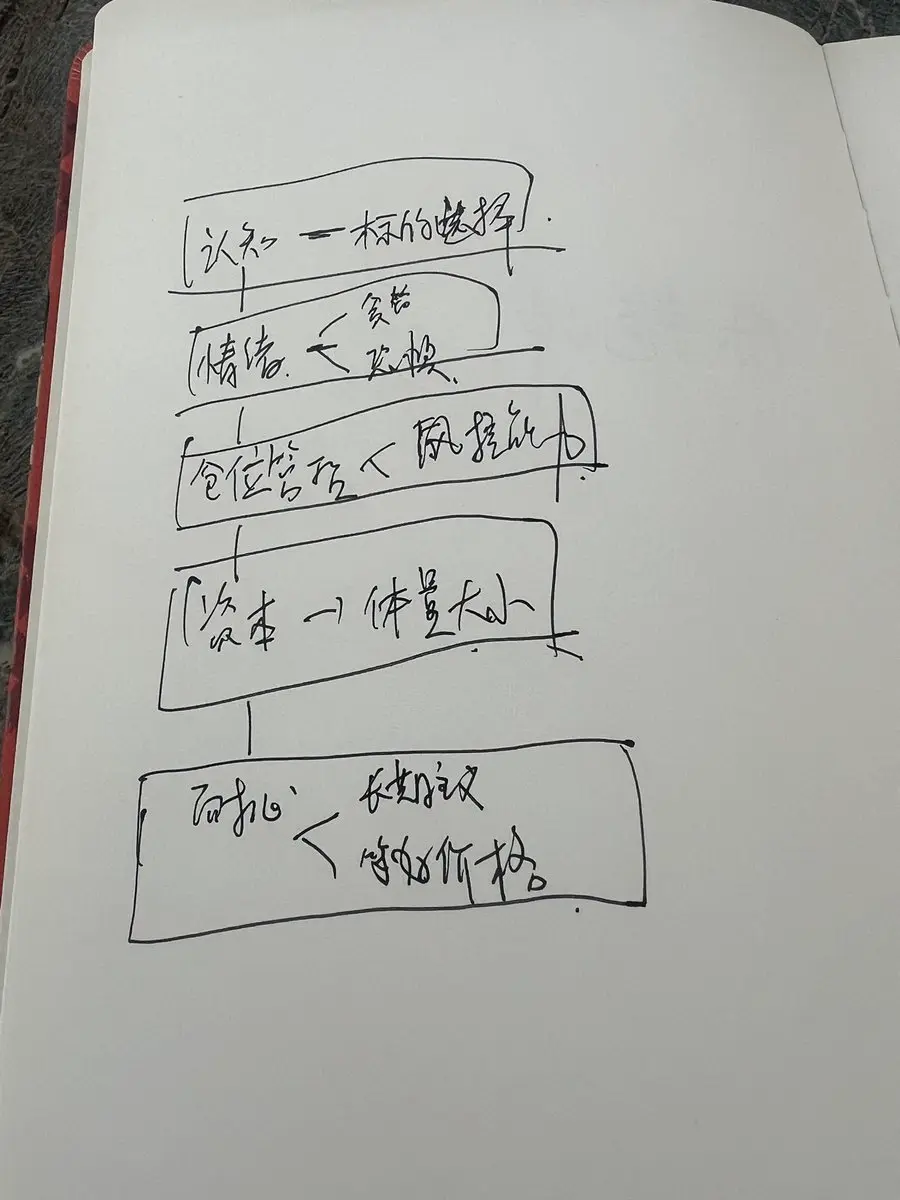 认知 — 标的选择.
情绪 < 贪婪
恐惧
仓位管理 < 风控能力
资本 → 体量大小
耐心 < 长期主义
等好价格。